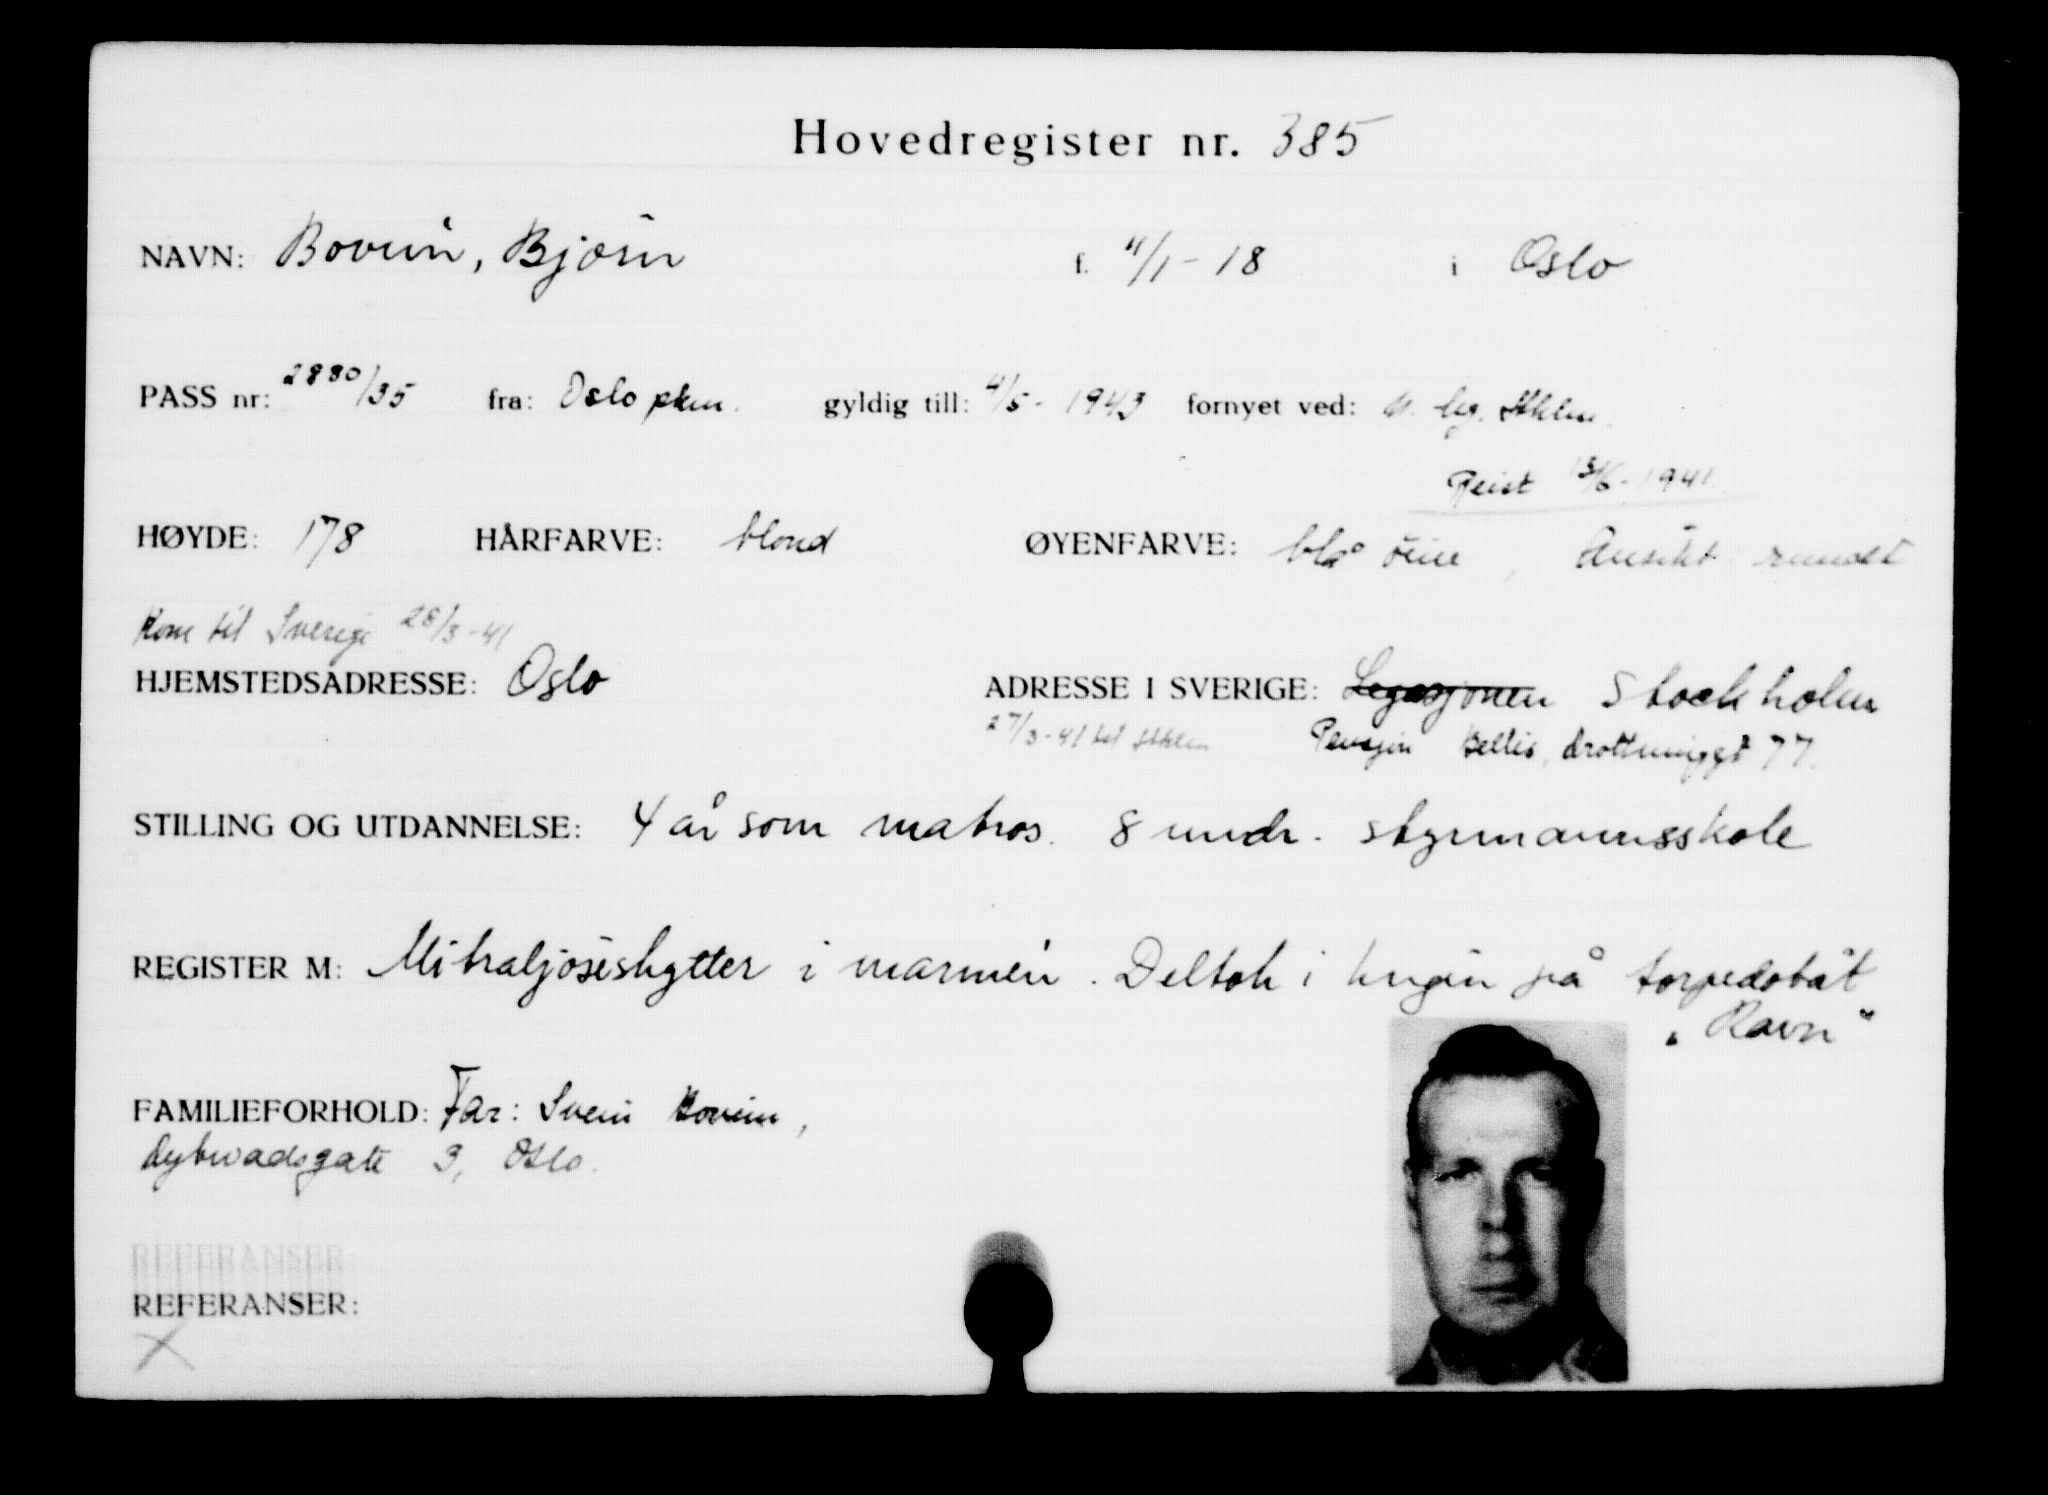 Hovedregister nr. 385
NAVN: Bovim, Bjørn f. 4/1-18 i Oslo
PASS nr: 2880/35 fra: Oslo pkm. gyldig till: 4/5-1943 fornyet ved: n. leg. Sthlm.
Reist 13/6-1941
HØYDE: 178 HÅRFARVE: blond ØYENFARVE: blå öine, Ansikt rundt
Kom til Sverige 28/3-41
HJEMSTEDSADRESSE: Oslo ADRESSE I SVERIGE: Legasjonen Stockholm
27/3-41 til Sthlm Pensjon Bellis, drottninggt 77.
STILLING OG UTDANNELSE: 4 år som matros. 8 mndr. styrmannsskole
REGISTER M: Mitraljøseskytter i marinen. Deltok i krigen på torpedobåt
"Ravn"
FAMILIEFORHOLD: Far: Svein Bovim,
dybwadsgate 3, Oslo.
REFERANSER:
REFERANSER:
X